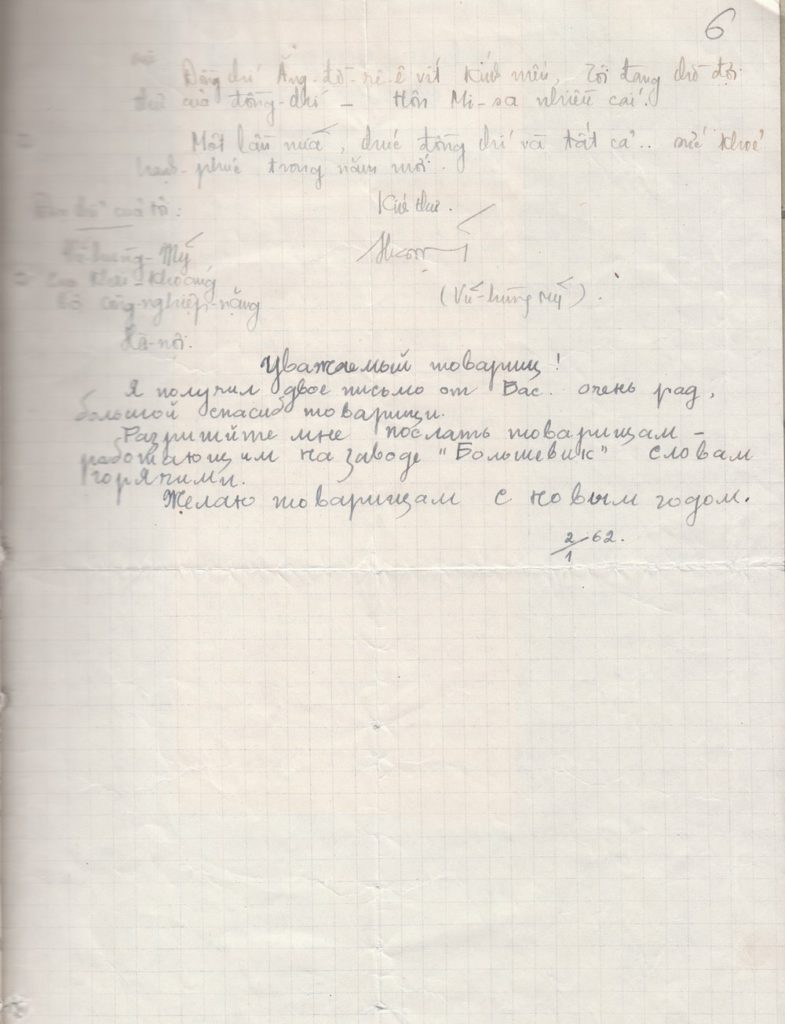 6
Đồng chí Ăng-đờ-rê-ê vít kính mến, Tôi đang chờ đợi
thư của đồng-chí - Hôn Mi-sa nhiều cái.
Một lần nữa, chúc đồng chí và tất cả.. sức khoẻ
hạnh-phúc trong năm mới.
Kính thư.
Vũ-hùng-Mỹ
(Vũ-hùng Mỹ).
Bộ công-nghiệp-nặng
Hà-nội.
Уважаемый товарищ!
Я получил двое письмо от Вас. очень рад,
большой спасиб товарищи.
Разришйте мне послать товарищам -
работающим на заводе "Большевик" словам
горячими.
Желаю товарищам с новым годом.
2/1 62.